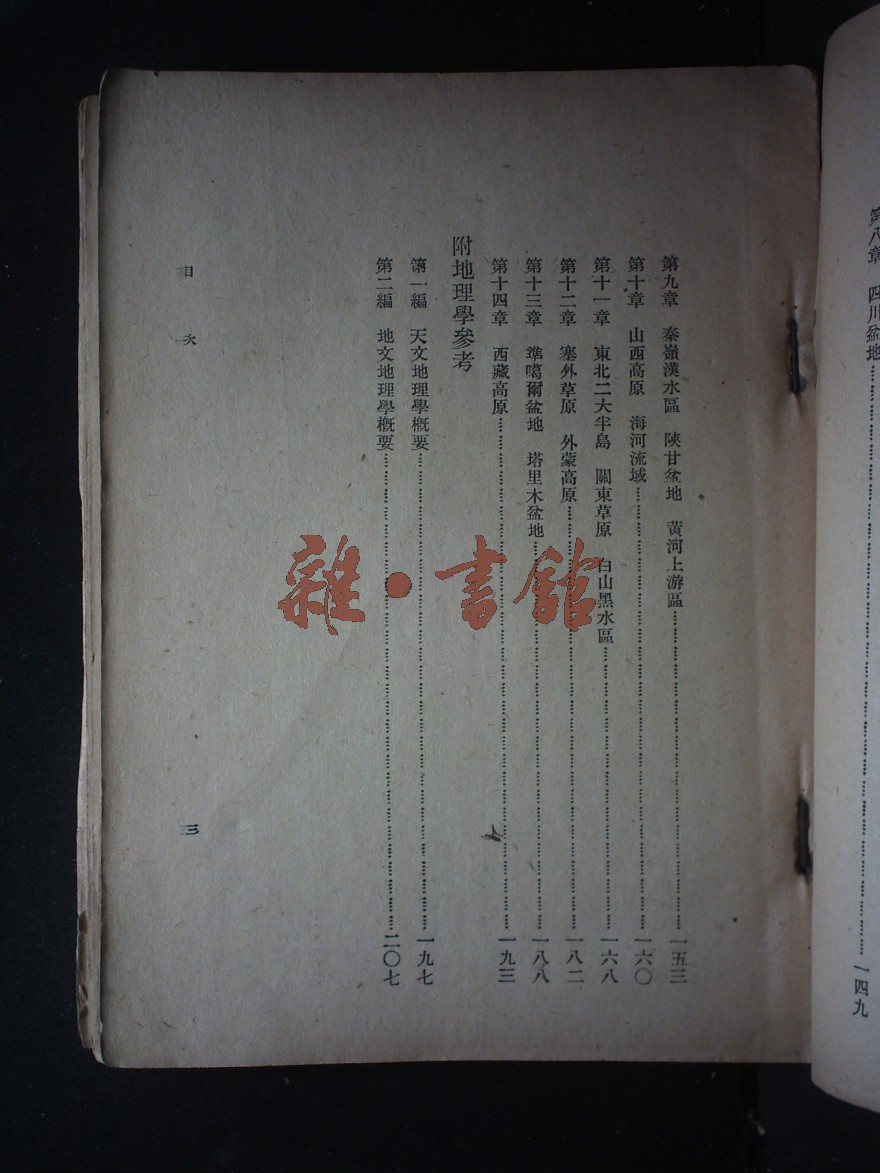 第八章　四川盆地……一四九
第九章　秦嶺漢水區　陝甘盆地　黃河上游區……一五三
第十章　山西高原　海河流域……一六〇
第十一章　東北二大半島　關東草原　白山黑水區……一六八
第十二章　塞外草原　外蒙高原……一八二
第十三章　準噶爾盆地　塔里木盆地……一八八
第十四章　西藏高原……一九三
附地理學參考
第一編　天文地理學概要……一九七
第二編　地文地理學概要……二〇七
目次
三
雜·書館